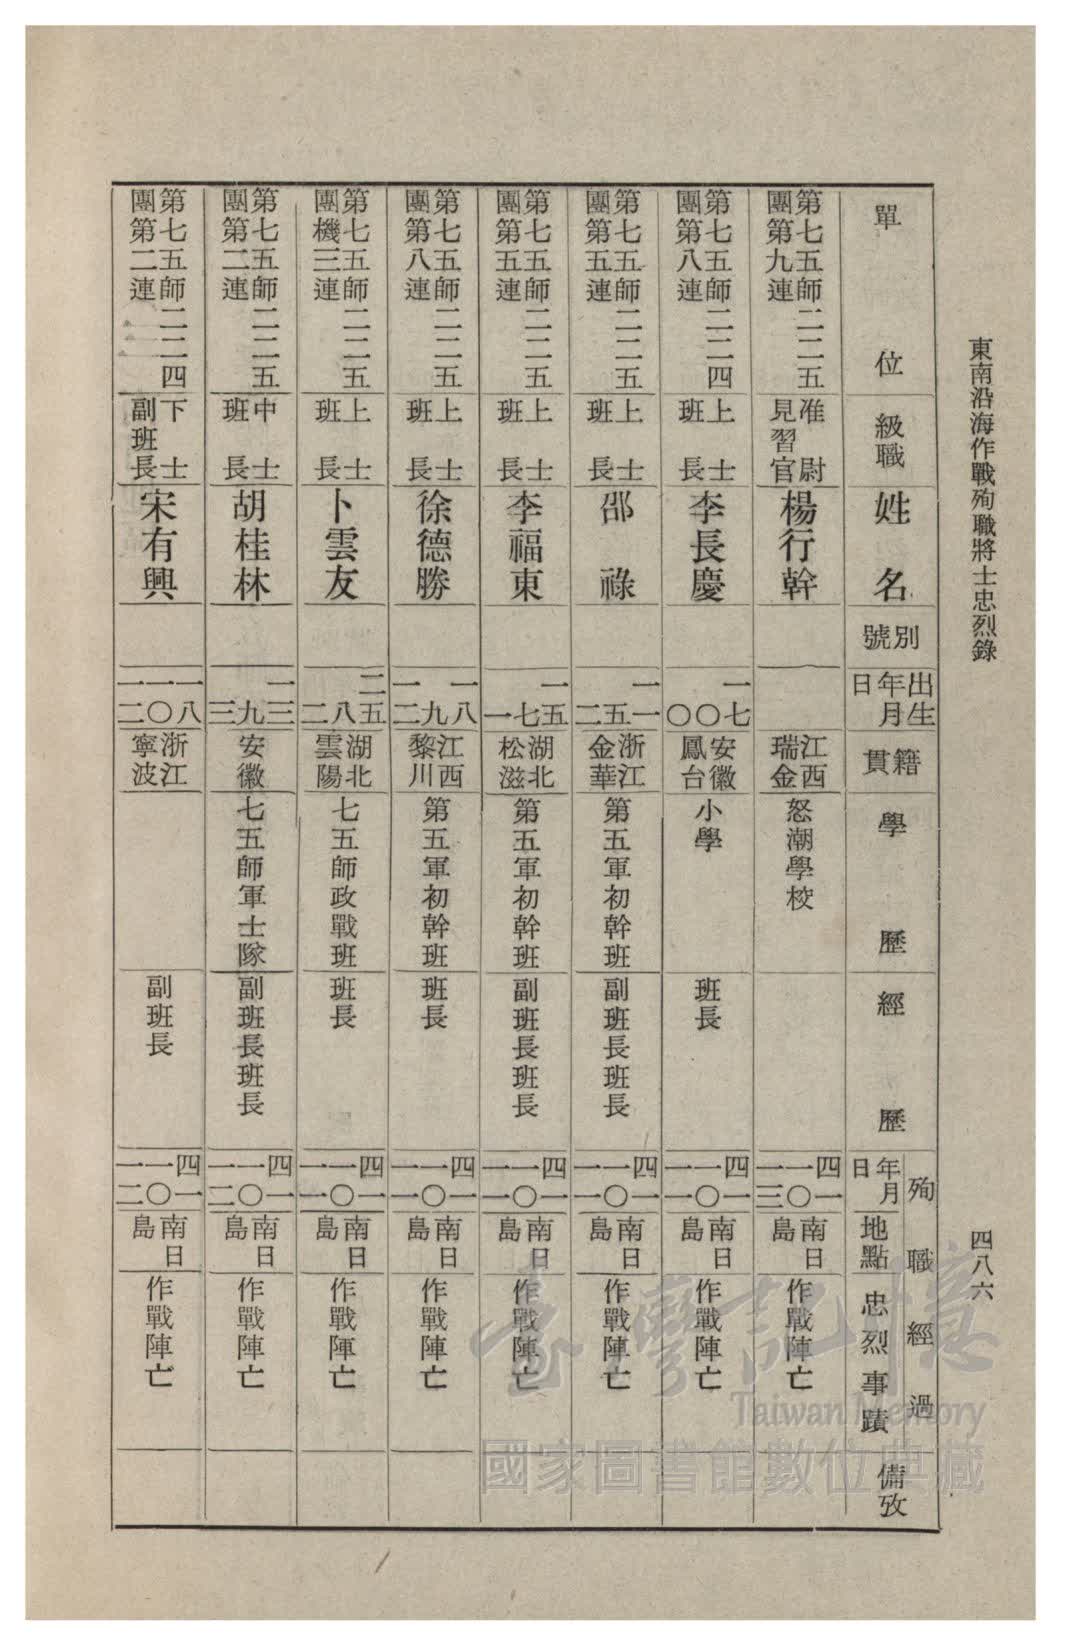 東南沿海作戰殉職將士忠烈錄
四八六
單位
級職
姓名
別號
出生
年月
日
籍貫
學歷
經歷
殉職經過
年月
日
地點
忠烈事蹟
備攷
第七五師二二五
團第九連
准尉
見習官
楊行幹
江西
瑞金
怒潮學校
四一
一〇
一三
南日
島
作戰陣亡
第七五師二二四
團第八連
上士
班長
李長慶
一七
〇
〇
安徽
鳳台
小學
班長
四一
一〇
一一
南日
島
作戰陣亡
第七五師二二五
團第五連
上士
班長
邵祿
一一
五
二
浙江
金華
第五軍初幹班
副班長班長
四一
一〇
一一
南日
島
作戰陣亡
第七五師二二五
團第五連
上士
班長
李福東
一五
七
一
湖北
松滋
第五軍初幹班
副班長班長
四一
一〇
一一
南日
島
作戰陣亡
第七五師二二五
團第八連
上士
班長
徐德勝
一八
九
一二
江西
黎川
第五軍初幹班
班長
四一
一〇
一一
南日
島
作戰陣亡
第七五師二二五
團機三連
上士
班長
卜雲友
二五
八
二
湖北
雲陽
七五師政戰班
班長
四一
一〇
一一
南日
島
作戰陣亡
第七五師二二五
團第二連
中士
班長
胡桂林
一三
九
三
安徽
七五師軍士隊
副班長班長
四一
一〇
一二
南日
島
作戰陣亡
第七五師二二四
團第二連
下士
副班長
宋有興
一八
一〇
一二
浙江
寧波
副班長
四一
一〇
一二
南日
島
作戰陣亡
臺灣記憶
Taiwan Memory
國家圖書館數位典藏